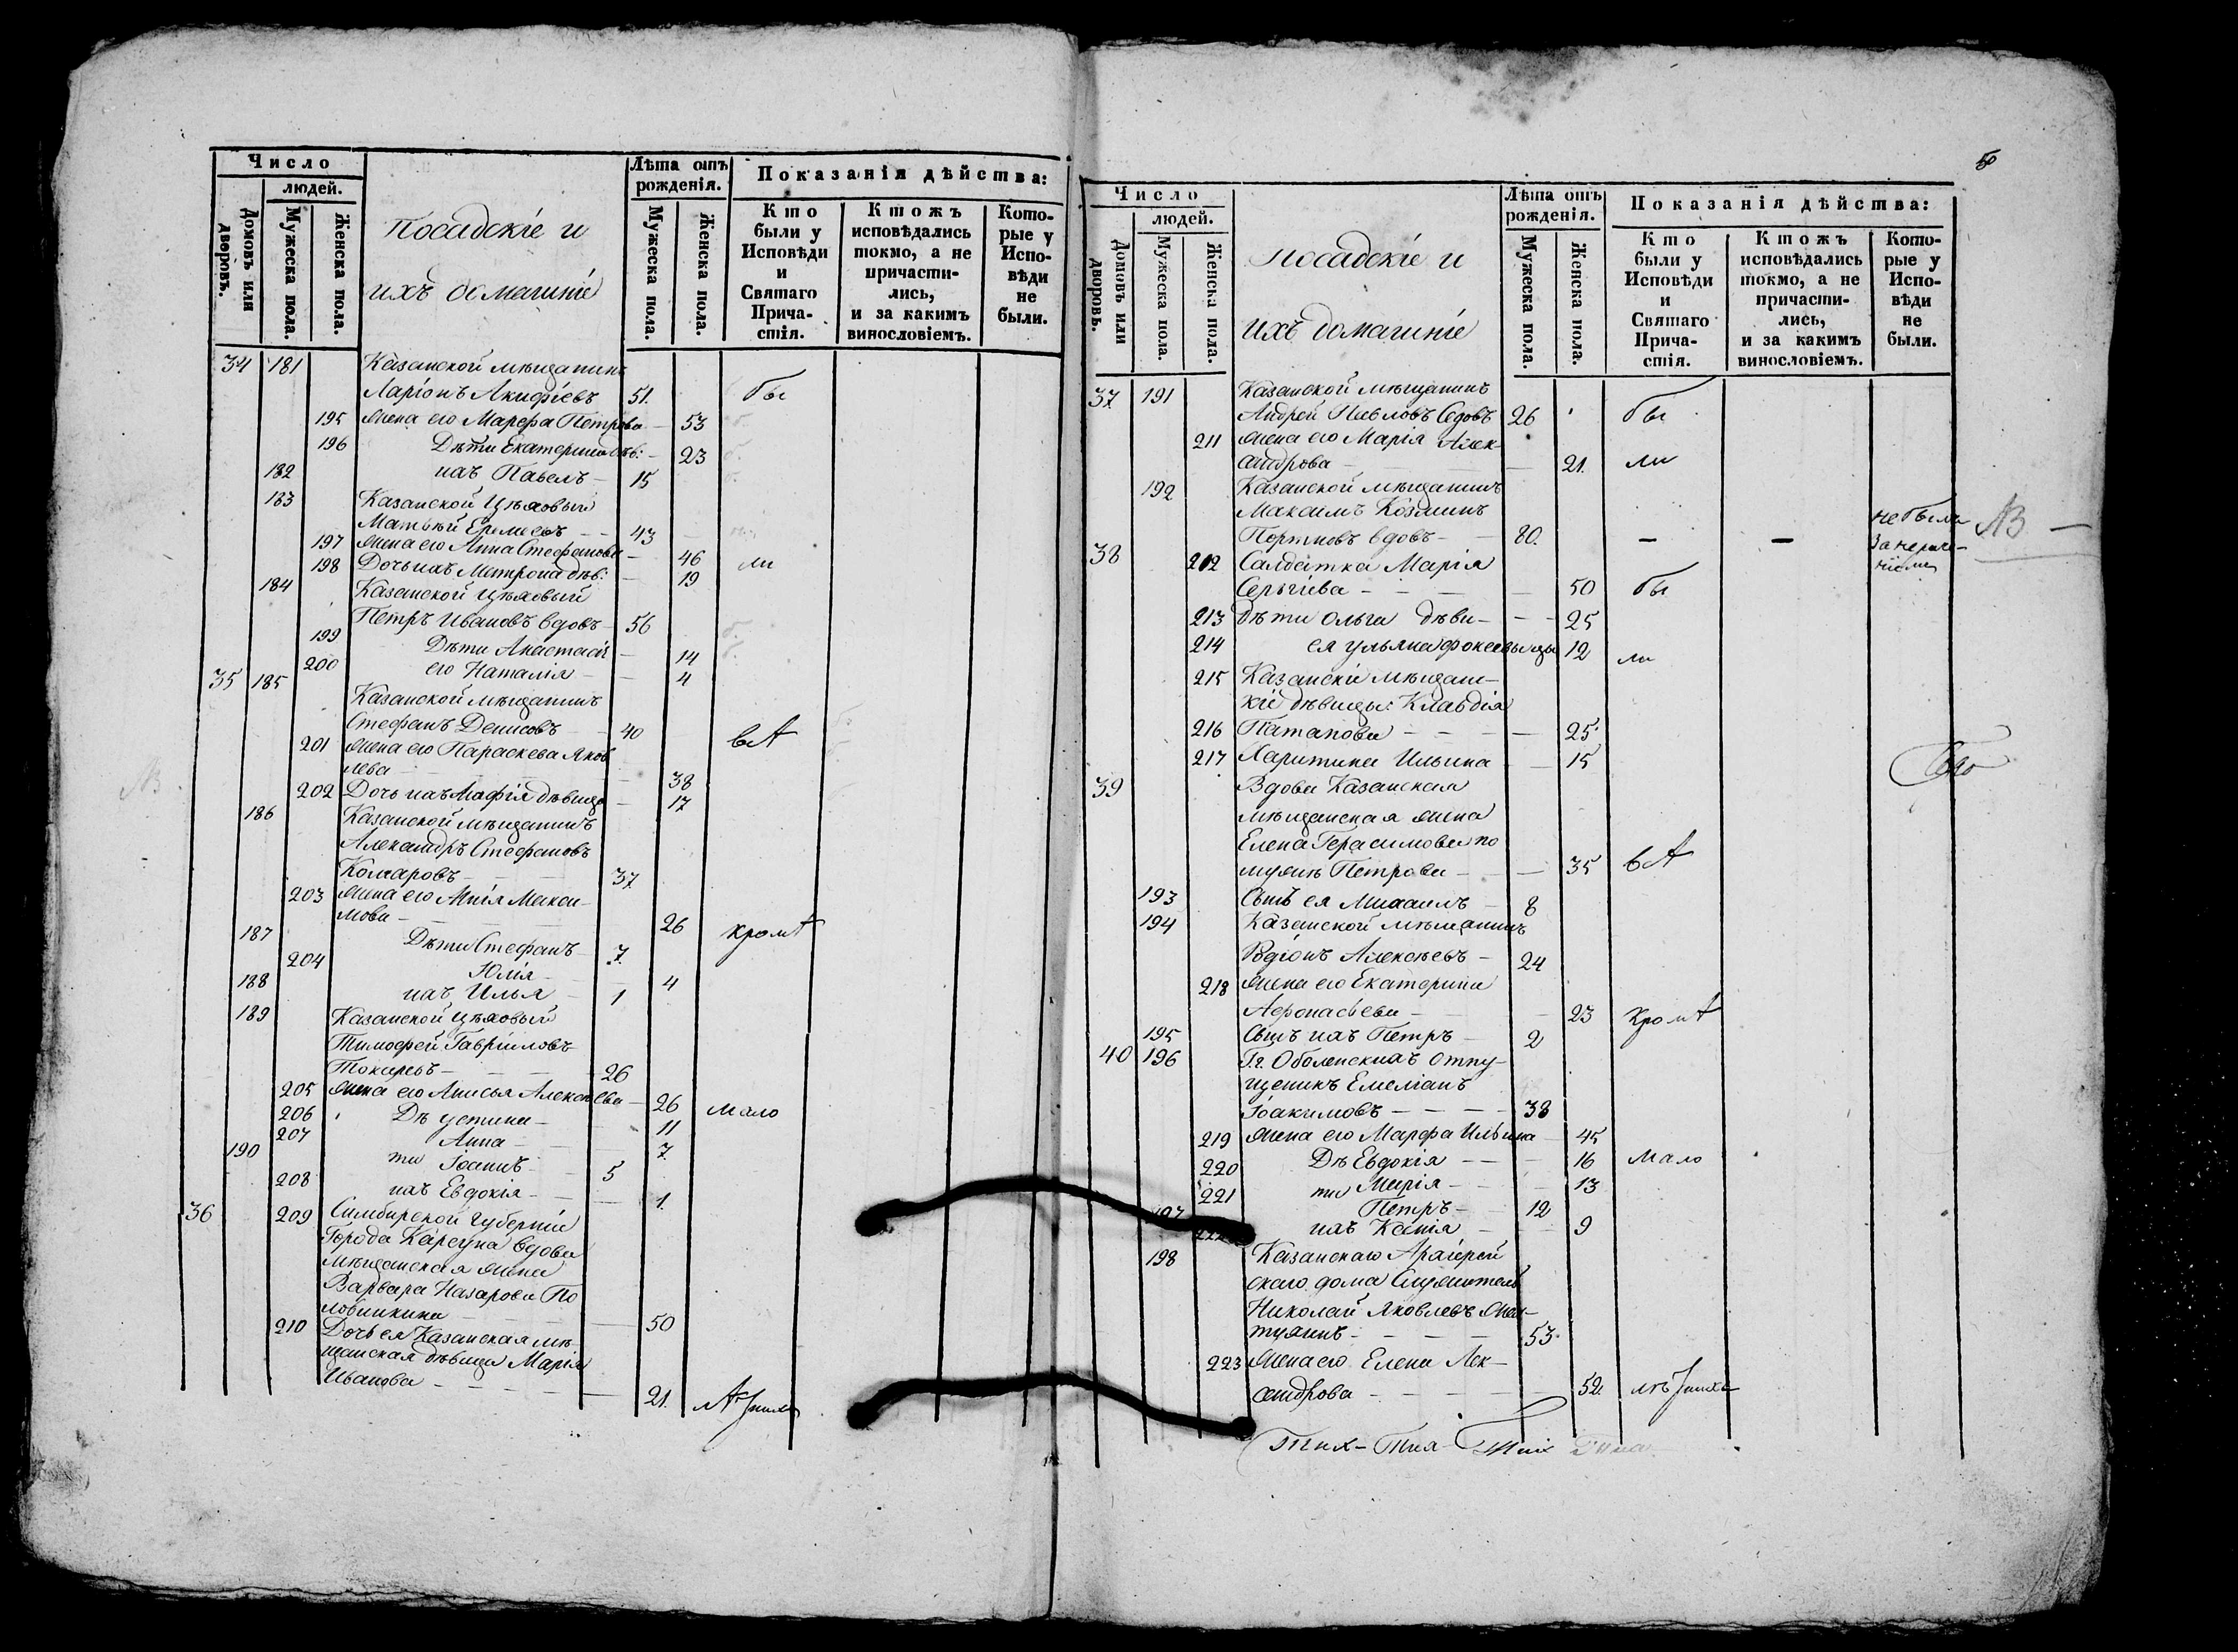 Число
людей.
Домовъ или дворовъ.
Мужеска пола.
Женска пола.
Посадскіе и
ихъ домашніе
Лѣта отъ рожденія.
Мужеска пола.
Женска пола.
Показанія дѣйства:
Кто были у Исповѣди и Святаго Причастія.
Ктожъ исповѣдались токмо, а не причастились, и за какимъ винословіемъ.
Которые у Исповѣди не были.
34 181 Казанской мѣщанинъ
Ларіонъ Акифіевъ 51. бы
195 Жена его Марфа Петрова 53
196 Дѣти Екатерина дѣв: 23
182 ихъ Павелъ 15
183 Казанской Цѣховый
Матвѣй Еремеевъ 43
197 Жена его Анна Стефанова 46 ли
198 Дочь ихъ Матрона дѣв: 19
184 Казанской Цѣховый
Петръ Ивановъ вдовъ 56
199 Дѣти Анастасія 14
200 его Наталія 4
35 185 Казанской мѣщанинъ
Стефанъ Денисовъ 40 всѣ
201 Жена его Параскева Яков
лева 38
202 Дочь ихъ Марія дѣвица 17
186 Казанской мѣщанинъ
Александръ Стефановъ
Комаровъ 37
203 Жена его Анна Макси-
мова 26 кромѣ
187 Дѣти Стефанъ 7.
204 Юлія 4
188 ихъ Илья 1
189 Казанской цѣховый
Тимофей Гавриловъ
Токаревъ 26
205 Жена его Анисья Алексѣева 26 мало
206 Дѣ Устина 11
207 Анна 7.
190 ти Іоаннъ 5
208 ихъ Евдокія 1.
36 209 Симбирской Губерніи
Города Карсуна вдова
мѣщанская жена
Варвара Назарова По
ловинкина 50
210 Дочь ея Казанская мѣ-
щанская дѣвица Марія
Иванова 21.
50
Число
людей.
Домовъ или дворовъ.
Мужеска пола.
Женска пола.
Посадскіе и
ихъ домашніе
Лѣта отъ рожденія.
Мужеска пола.
Женска пола.
Показанія дѣйства:
Кто были у Исповѣди и Святаго Причастія.
Ктожъ исповѣдались токмо, а не причастились, и за какимъ винословіемъ.
Которые у Исповѣди не были.
37 191 Казанской мѣщанинъ
Андрей Павловъ Седовъ 26 бы
211 Жена его Марія Алек-
сандрова 21. ли
192 Казанской мѣщанинъ
Максимъ Козминъ
Портновъ вдовъ 80. не былъ
38 212 Салдатка Марія
Сергѣева 50 бы
213 Дѣти Ольга дѣви- 25
214 ея Ульяна Фокеевы цы 12 ли
215 Казанскіе мѣщанс-
кіе дѣвицы: Клавдія
216 Патапова 25
217 Харитина Ильина 15
39 Вдова Казанская
мѣщанская жена
Елена Герасимова по
мужѣ Петрова 35 всѣ
193 Сынъ ея Михаилъ 8
194 Казанской мѣщанинъ
Родіонъ Алексѣевъ 24
218 Жена его Екатерина
Афонасьева 23 кромѣ
195 Сынъ ихъ Петръ 2
40 196 Г.г. Оболенскихъ отпу-
щеникъ Емеліанъ
Іоакимовъ 38
219 Жена его Марфа Ильина 45
220 Дѣ Евдокія 16 мало
221 ти Марія 13
197 Петръ 12
222 ихъ Ксенія 9
198 Казанскаго Архіерей
скаго дома Служитель
Николай Яковлевъ
53.
223 Жена его Елена Лек-
сандрова 52.